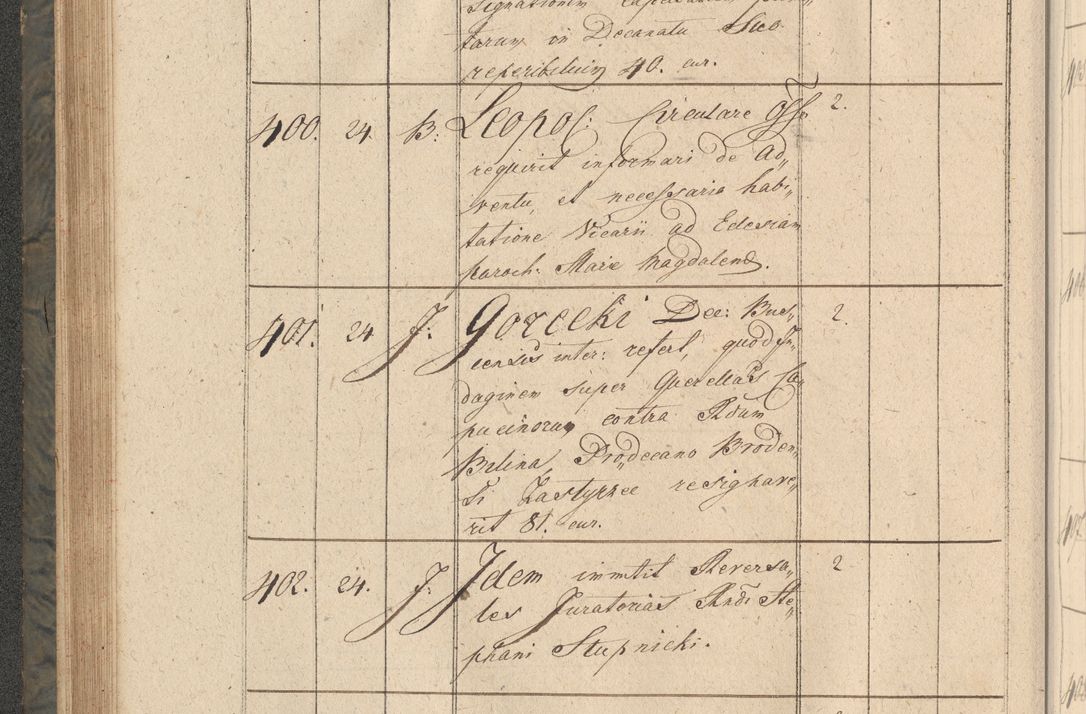 tarum in Decanatu
40. cur.
400. 24. B: Leopol: Circulare Offo 2.
requirit informari de ad„
ventu, et necessaria habi„
tatione Vicarii ad Eclesiam
paroch. Mariæ Magdalenæ.
401. 24 J: Gorecki Dec: Bus„ 2.
censis inter: refert, quod In„
daginem super Querellas Ca„
pucinorum contra Rdum
Belina, Prodecano Broden„
si Zastyrzee resignave„
rit 81. cur.
402. 24. J: Idem immitit Reversa„ 2
les Juratorias Rndi Ste„
phani Stupnicki.